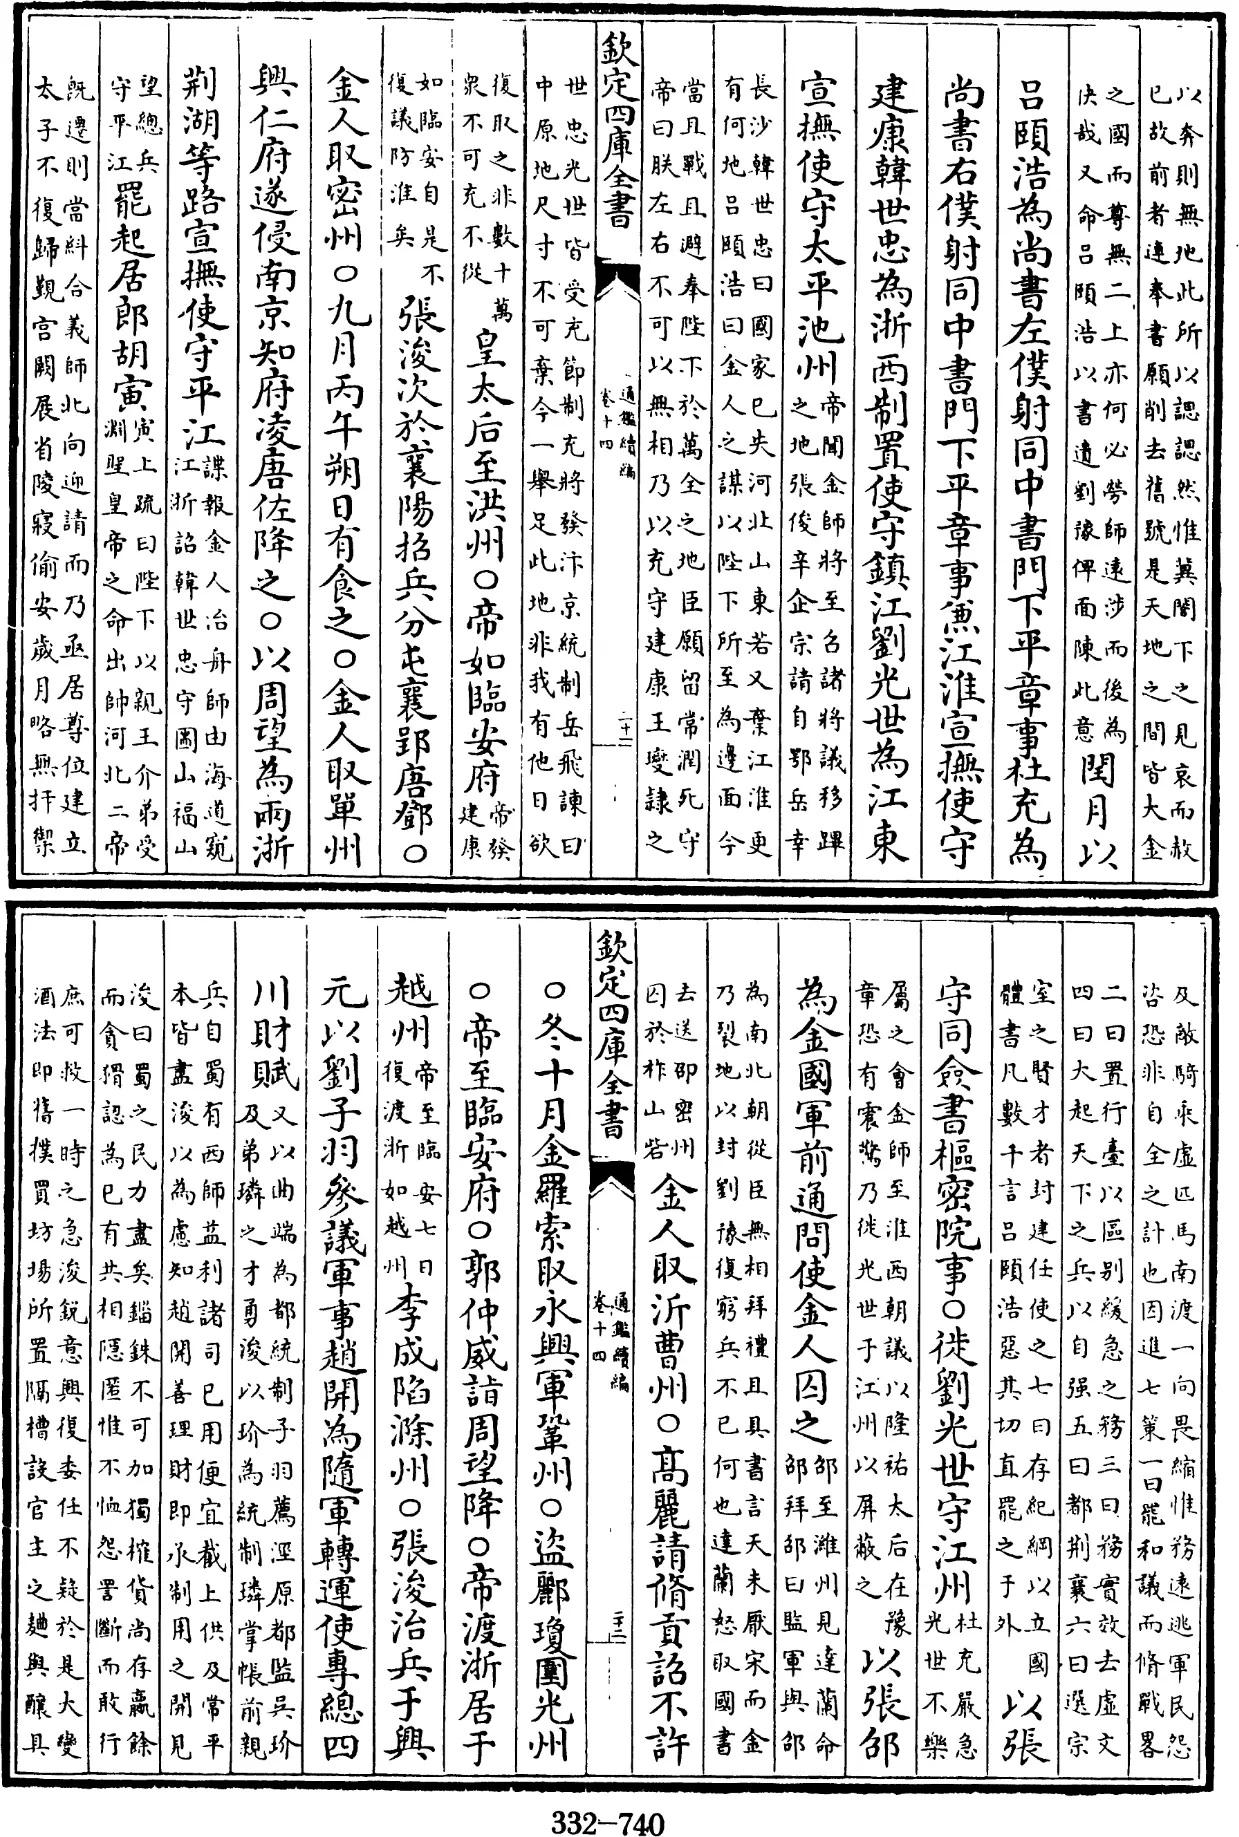 以奔則無地此所以諰諰然惟冀閣下之見哀而赦
已故前者連奉書願削去舊號是天地之間皆大金
之國而尊無二上亦何必勞師遠涉而後為
快哉又命呂頤浩以書遺劉豫俾面陳此意
閏月以
呂頤浩為尚書左僕射同中書門下平章事杜充為
尚書右僕射同中書門下平章事兼江淮宣撫使守
建康韓世忠為浙西制置使守鎮江劉光世為江東
宣撫使守太平池州
帝聞金師將至召諸將議移蹕
之地張俊辛企宗請自鄂岳幸
長沙韓世忠曰國家已失河北山東若又棄江淮更
有何地呂頤浩曰金人之謀以陛下所至為邊面今
當且戰且避奉陛下於萬全之地臣願留常潤死守
帝曰朕左右不可以無相乃以充守建康王𤫉隸之
欽定四庫全書
通鑑續編
卷十四
二十一
世忠光世皆受充節制充將發汴京統制岳飛諫曰
中原地尺寸不可棄今一舉足此地非我有他日欲
復取之非數十萬
衆不可充不從
皇太后至洪州○帝如臨安府
帝發
建康
如臨安自是不
復議防淮矣
張浚次於襄陽招兵分屯襄郢唐鄧○
金人取密州○九月丙午朔日有食之○金人取單州
興仁府遂侵南京知府凌唐佐降之○以周望為兩浙
荆湖等路宣撫使守平江
諜報金人治舟師由海道窺
江浙詔韓世忠守圌山福山
望總兵
守平江
罷起居郎胡寅
寅上疏曰陛下以親王介弟受
淵聖皇帝之命出帥河北二帝
既遷則當糾合義師北向迎請而乃亟居尊位建立
太子不復歸覲宮闕展省陵寢偷安歲月略無扞禦
及敵騎乘虛匹馬南渡一向畏縮惟務遠逃軍民怨
咨恐非自全之計也因進七策一曰罷和議而脩戰畧
二曰置行臺以區别緩急之務三曰務實效去虛文
四曰大起天下之兵以自强五曰都荆襄六曰選宗
室之賢才者封建任使之七曰存紀綱以立國
體書凡數千言呂頤浩惡其切直罷之于外
以張
守同僉書樞密院事○徙劉光世守江州
杜充嚴急
光世不樂
屬之會金師至淮西朝議以隆祐太后在豫
章恐有震驚乃徙光世于江州以屏蔽之
以張邵
為金國軍前通問使金人囚之
邵至濰州見達蘭命
邵拜邵曰監軍與邵
為南北朝從臣無相拜禮且具書言天未厭宋而金
乃裂地以封劉豫復窮兵不已何也達蘭怒取國書
去送邵密州
囚於柞山砦
金人取沂曹州○高麗請脩貢詔不許
欽定四庫全書
通鑑續編
卷十四
二十二
○冬十月金羅索取永興軍鞏州○盜酈瓊圍光州
○帝至臨安府○郭仲威詣周望降○帝渡浙居于
越州
帝至臨安七日
復渡浙如越州
李成陷滁州○張浚治兵于興
元以劉子羽參議軍事趙開為隨軍轉運使專總四
川財賦
又以曲端為都統制子羽薦涇原都監吳玠
及弟璘之才勇浚以玠為統制璘掌帳前親
兵自蜀有西師益利諸司已用便宜截上供及常平
本皆盡浚以為慮知趙開善理財即承制用之開見
浚曰蜀之民力盡矣錙銖不可加獨榷貨尚存贏餘
而貪猾認為已有共相隱匿惟不恤怨詈斷而敢行
庶可救一時之急浚銳意興復委任不疑於是大變
酒法即舊撲買坊場所置隔槽設官主之麯與釀具
332-740